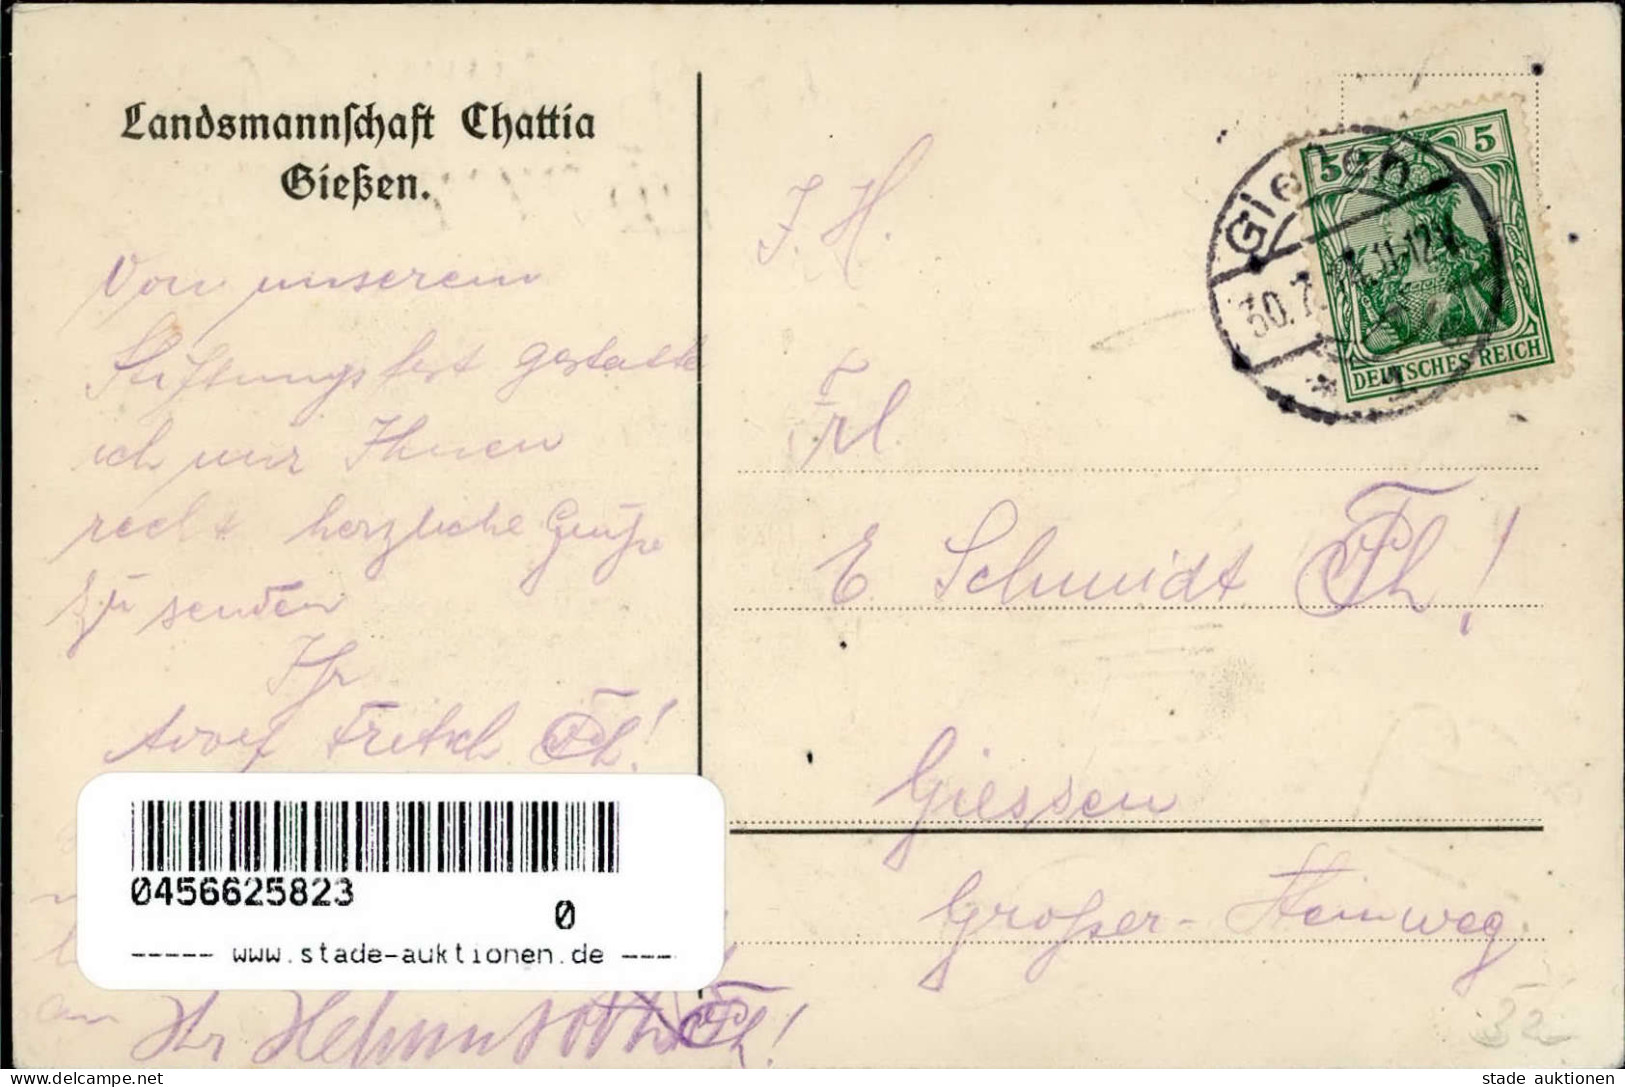 Landsmannſchaft Chattia
Gießen.
Von unserem
Stiftungsfest gestatte
ich mir Ihnen
recht herzliche Grüße
zu senden
Ihr
Adolf Fritsch
J. H.
Frl.
E Schmidt
Giessen
Großer-Steinweg.
Gießen
30.7. 11-12V.
* 1
5 5
DEUTSCHES REICH
0456625823
0
----- www.stade-auktionen.de ----
Ihr
32
delcampe.net
stade auktionen